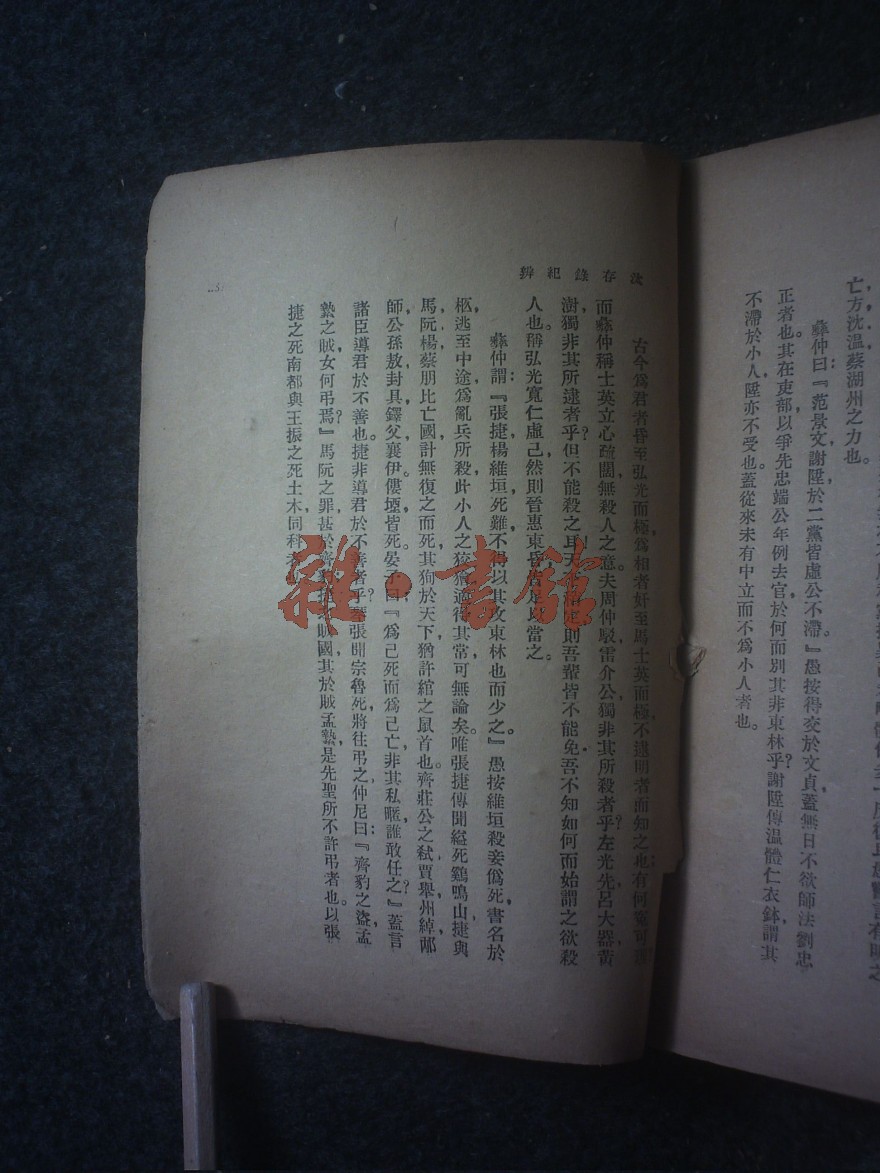 亡，方沈溫蔡湖州之力也。
彝仲曰：『范景文謝陞於二黨皆虛公不滯。』愚按得交於文貞，蓋無日不欲師法劉忠
正者也。其在吏部以爭先忠端公年例去官，於何而別其非東林乎？謝陞傳溫體仁衣鉢，謂其
不滯於小人，陞亦不受也。蓋從來未有中立而不爲小人者也。
汰存錄紀辨
古今爲君者昏至弘光而極，爲相者奸至馬士英而極，不逮明者而知之也，有何冤可
而彝仲稱士英立心疏闊，無殺人之意。夫周仲馭雷介公獨非其所殺者乎？左光先呂大器黃
澍獨非其所逮者乎？但不能殺之耳。天 稍定，則吾輩皆不能免。吾不知如何而始謂之欲殺
人也。稱弘光寬仁虛己，然則晉惠東昏皆足以當之。
彝仲謂：『張捷楊維垣死難，不得以其攻東林也而少之。』愚按維垣殺妾僞死，書名於
柩，逃至中途，爲亂兵所殺，此小人之狡獪，適得其常，可無論矣。唯張捷傳聞縊死鷄鳴山，捷與
馬阮楊蔡朋比亡國，計無復之而死，其狥於天下，猶許綰之鼠首也。齊莊公之弑，賈舉州綽邴
師公孫敖封具鐸父襄伊僂堙皆死。晏子曰：『爲己死而爲己亡，非其私暱，誰敢任之？』蓋言
諸臣導君於不善也。捷非導君於不善者乎？琴張聞宗魯死，將往弔之，仲尼曰：『齊豹之盜，孟
縶之賊，女何弔焉？』馬阮之罪甚於齊豹，捷之賊國，其於賊孟縶，是先聖所不許弔者也。以張
捷之死南都與王振之死土木，同科者
5
雜·書館